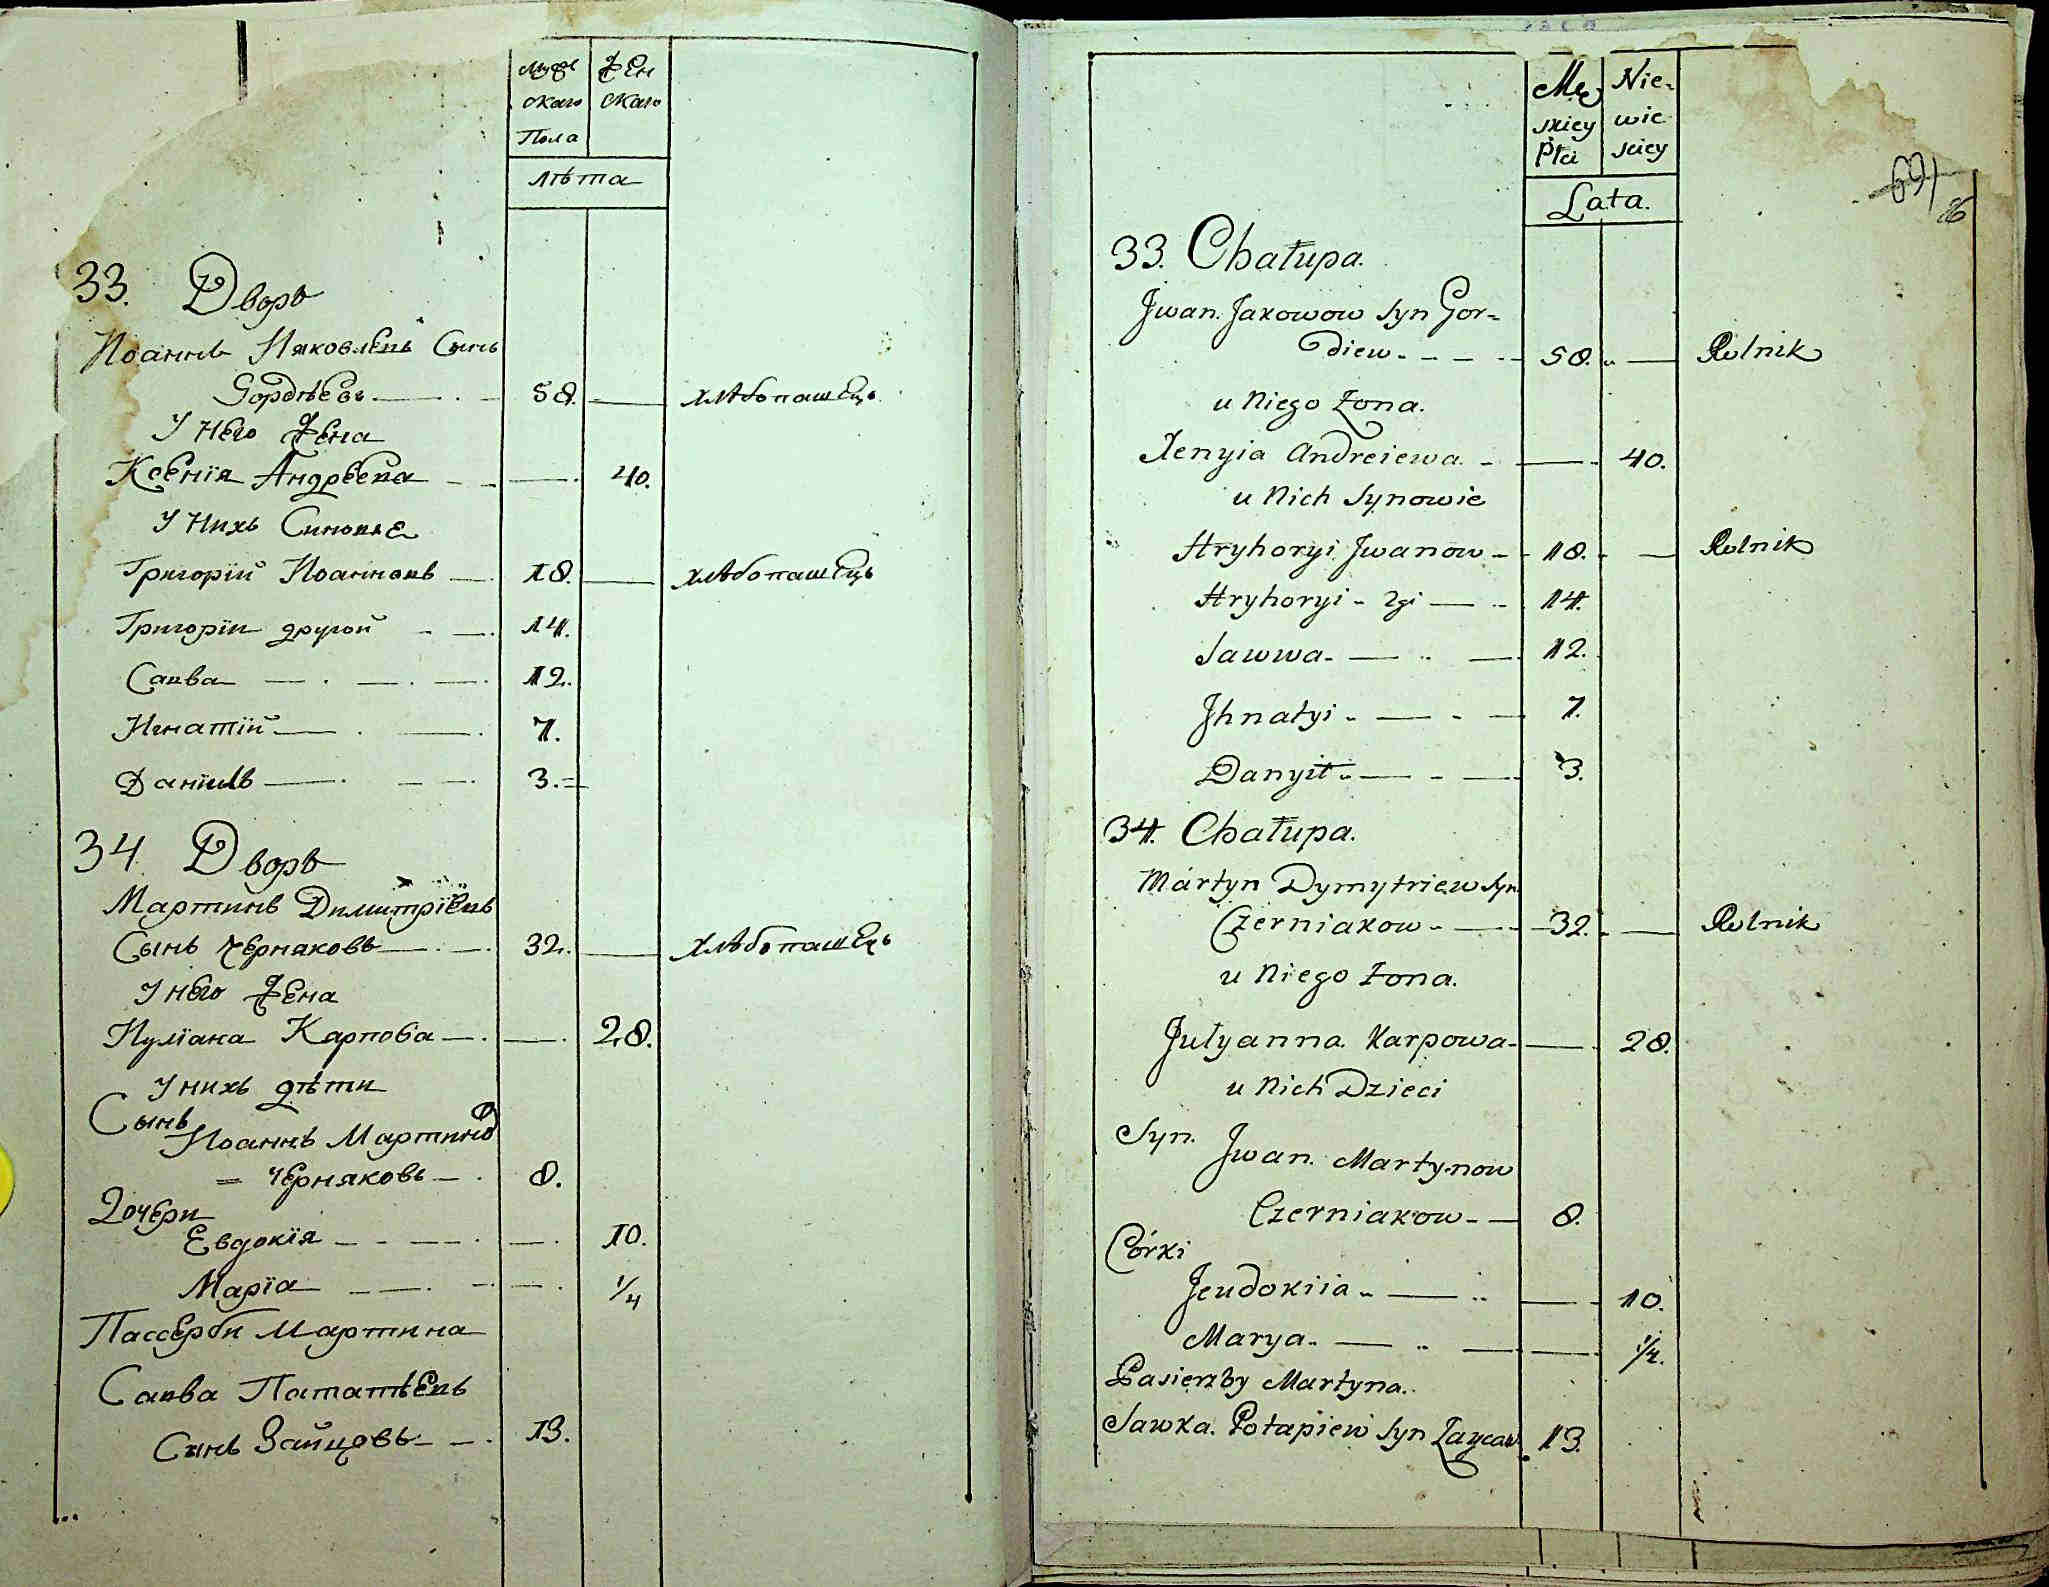 Муже Жен
скаго скаго
Пола
лѣта
33. Дворъ
Иоаннъ Ияковлевъ Сынъ
Гордѣевъ 58. хлѣбопашецъ
У Него Жена
Ксенїя Андрѣева 40.
У Нихъ Синовья
Григорїй Иоанновъ 18. хлѣбопашецъ
Григорїй другой 14.
Савва 12.
Игнатїй 7.
Данїилъ 3.
34 Дворъ
Мартинъ Димитрїевъ
Сынъ Черняковъ 32. хлѣбопашецъ
У него Жена
Иулїана Карпова 28.
У нихъ дѣти
Сынъ
Иоаннъ Мартинов
= Черняковъ 8.
Дочери
Евдокїя 10.
Марїа 1/4
Пассерби Мартина
Савва Патапѣевъ
Сынъ Зайцовъ 13.
Mę Nie=
skiey wie
Płci skiey
Lata.
69
33. Chałupa.
Jwan. Jakowow syn Gor=
diew 58. Rolnik
u Niego Żona.
Xenyia Andreiewa 40.
u Nich Synowie
Hryhoryi Jwanow 18. Rolnik
Hryhoryi 2gi 14.
Sawwa 12.
Jhnatyi 7.
Danyił 3.
34. Chałupa.
Martyn Dymytriew syn
Czerniakow 32. Rolnik
u Niego Żona.
Julyanna Karpowa 28.
u Nich Dzieci
Syn.
Jwan. Martynow
Czerniakow 8.
Córki
Jeudokiia 10.
Marya 1/4.
Pasierzby Martyna.
Sawka. Potapiew syn Zaycow 13.